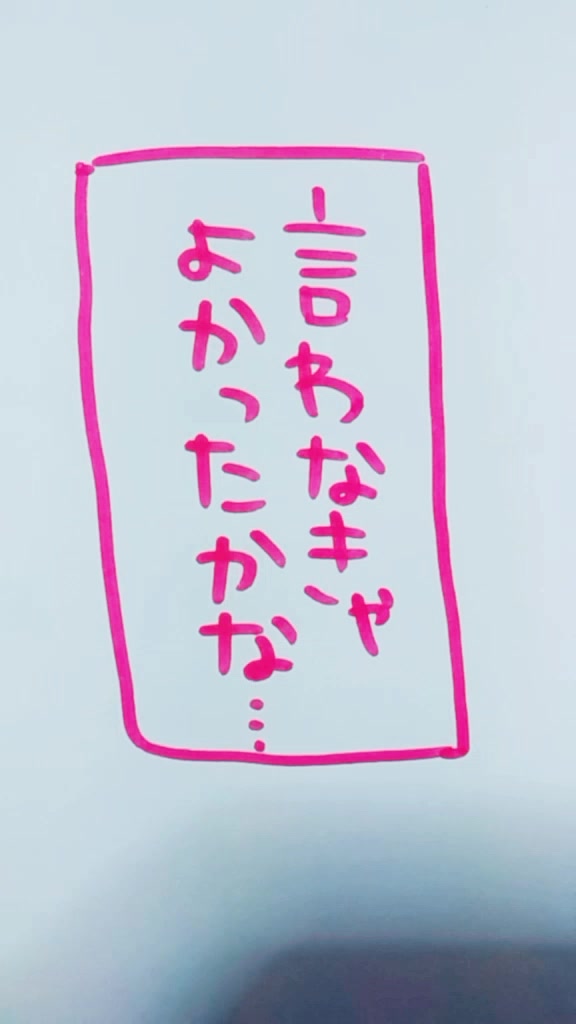 言わなきゃ
よかったかな…